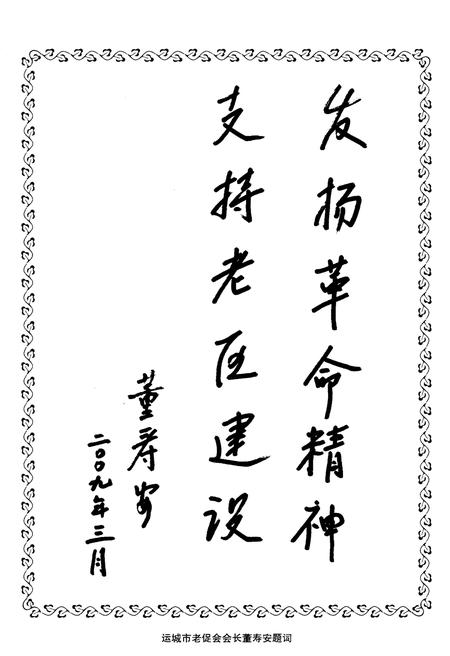 发扬革命精神
支持老区建设
董寿安
二〇〇九年三月
运城市老促会会长董寿安题词